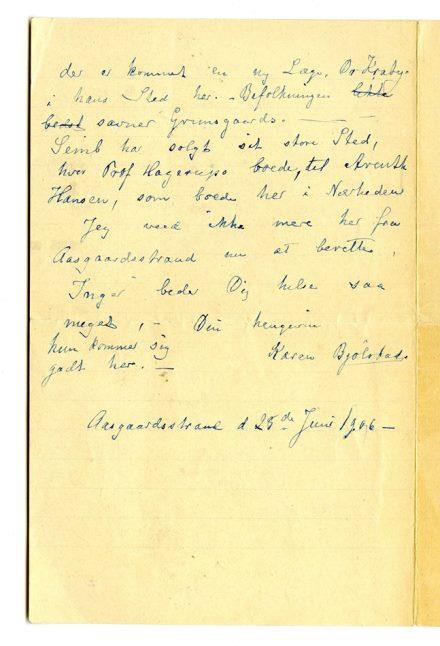 der er kommet en ny Læge, Dr Kraby
i hans Sted her. – Befolkningen
savner Grimsgaards. —
Semb har solgt sit store Sted,
hvor Prof boede, til Arenth
Hansen, som boede her i Nærheden
Jeg veed ikke mere her fra
Aasgaardsstrand nu at berette,
Inger beder Dig hilse saa
meget, – Din hengivne
hun kommer sig Karen Bjølstad.
godt her. —
Aasgaardsstrand d 28de Juni 1906 —